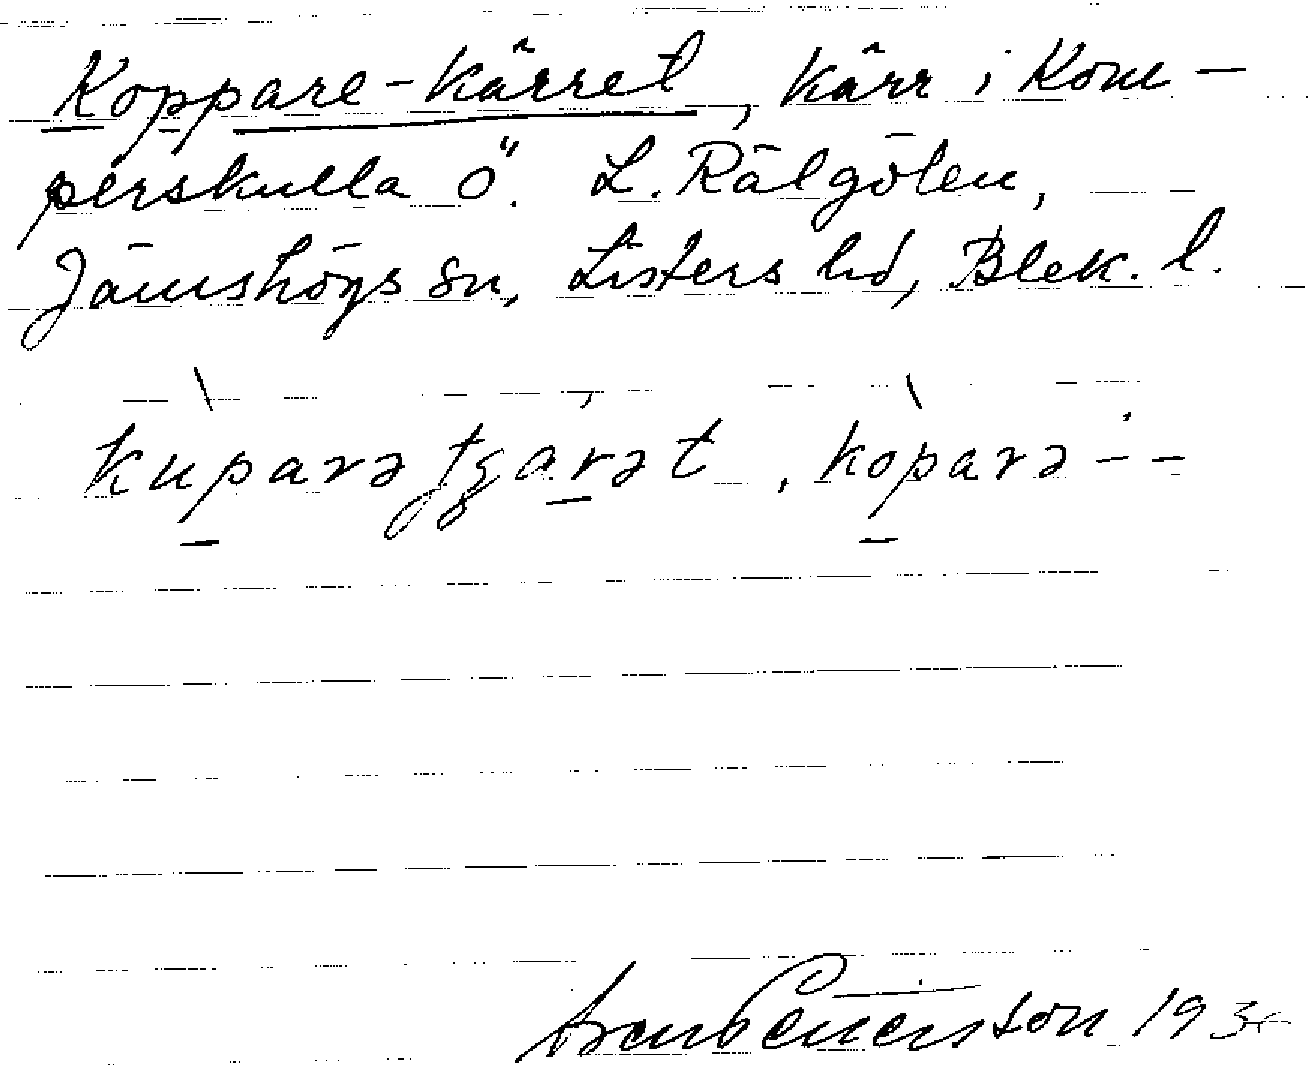 Koppare-kärret, kärr i Kom-
perskulla ö. L. Rälgölen,
Jämshögs sn, Listers hd, Blek. l.
kùparə ʃʒárət, kòparə --
son 193